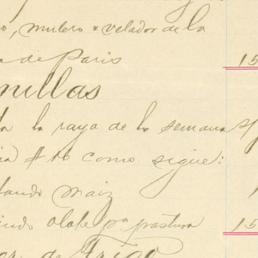 o, mulero & velador de la
a de Paris 15
nillas
la raya de la semana
$16 como sigue:
ando maiz
ndo olote pa pastura 15
de Trigo